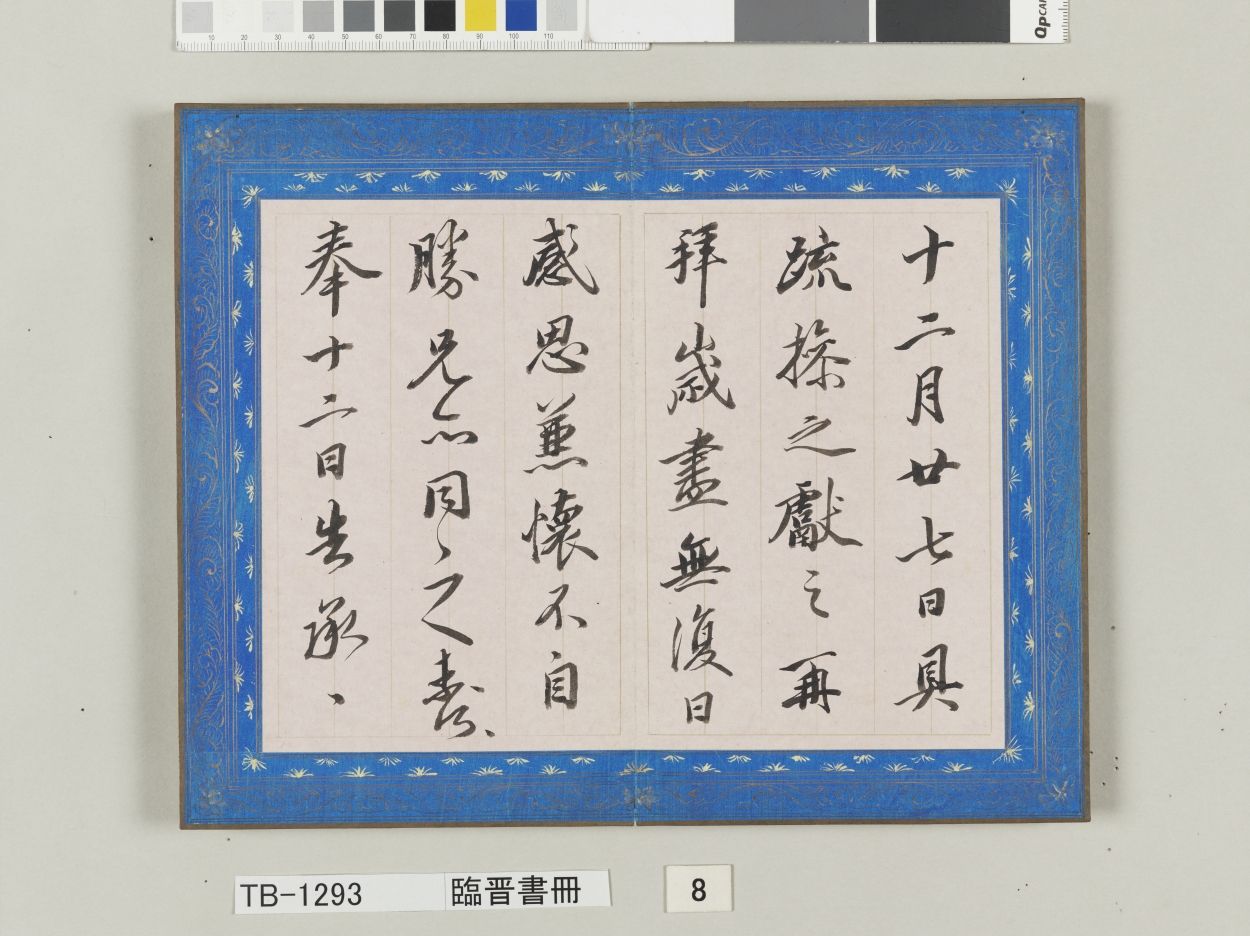 10 20 30 40 50 60 70 80 90 100 110
QPCA
十二月廿七日具
疏操之獻之再
拜歲盡無復日
感思兼懷不自
勝兄亦同
奉十二日告承
TB-1293 臨晋書冊 8